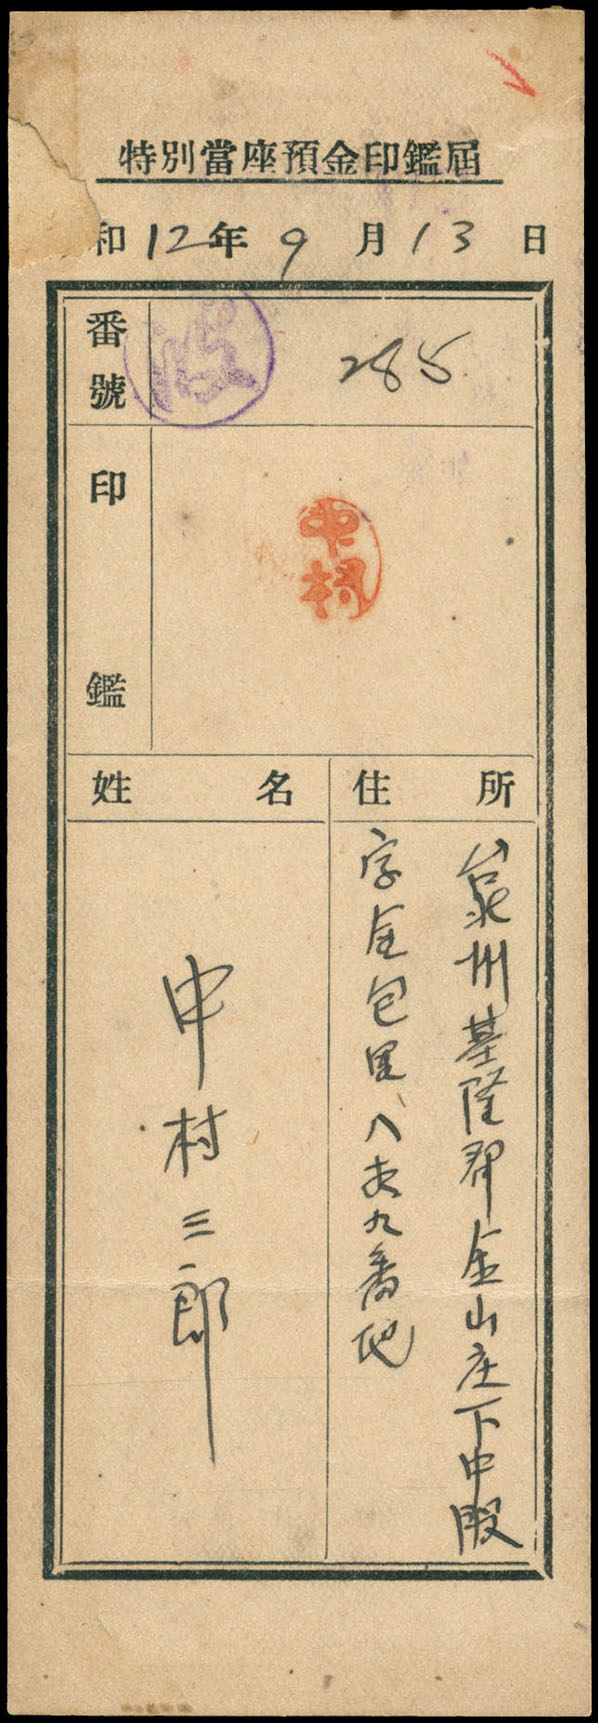 特別當座預金印鑑屆
和12年9月13日
番號
285
印鑑
中村
住所
台北州基隆郡金山庄下中股
字金包里八五九番地
姓名
中村三郎